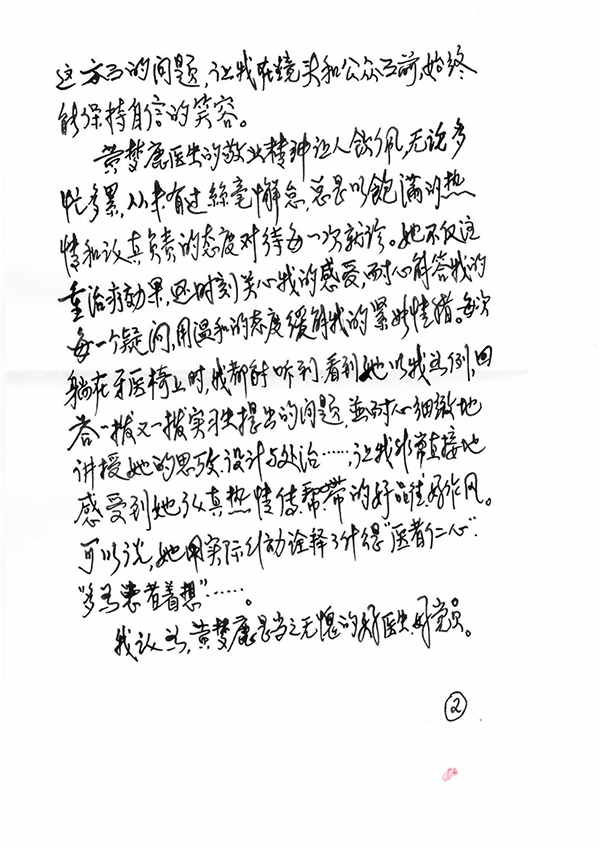 这方面的问题，让我在镜头和公众面前，始终
能保持自信的笑容。
黄梦康医生的敬业精神让人钦佩，无论多
忙多累，从未有过丝毫懈怠，总是以饱满的热
情和认真负责的态度对待每一次就诊。她不仅注
重治疗效果，还时刻关心我的感受，耐心解答我的
每一个疑问，用温和的态度缓解我的紧张情绪。每次
躺在牙医椅上时，我都能听到、看到她以我为例，回
答一拨又一拨实习生提出的问题，並耐心细致地
讲授她的思路、设计与处治……，让我非常直接地
感受到她认真热情传、帮、带的好品性、好作风。
可以说，她用实际行动诠释了什么是“医者仁心”、
“多为患者着想”……。
我认为，黄梦康是当之无愧的好医生、好党员。
②